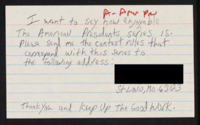 A-Am Pr
I want to say how enjoyable
The American Presidents series is.
Please send me the contest rules that
correspond with this series to
the following address.
St. Louis, MO 63163
Thank you and keep up The Good Work.